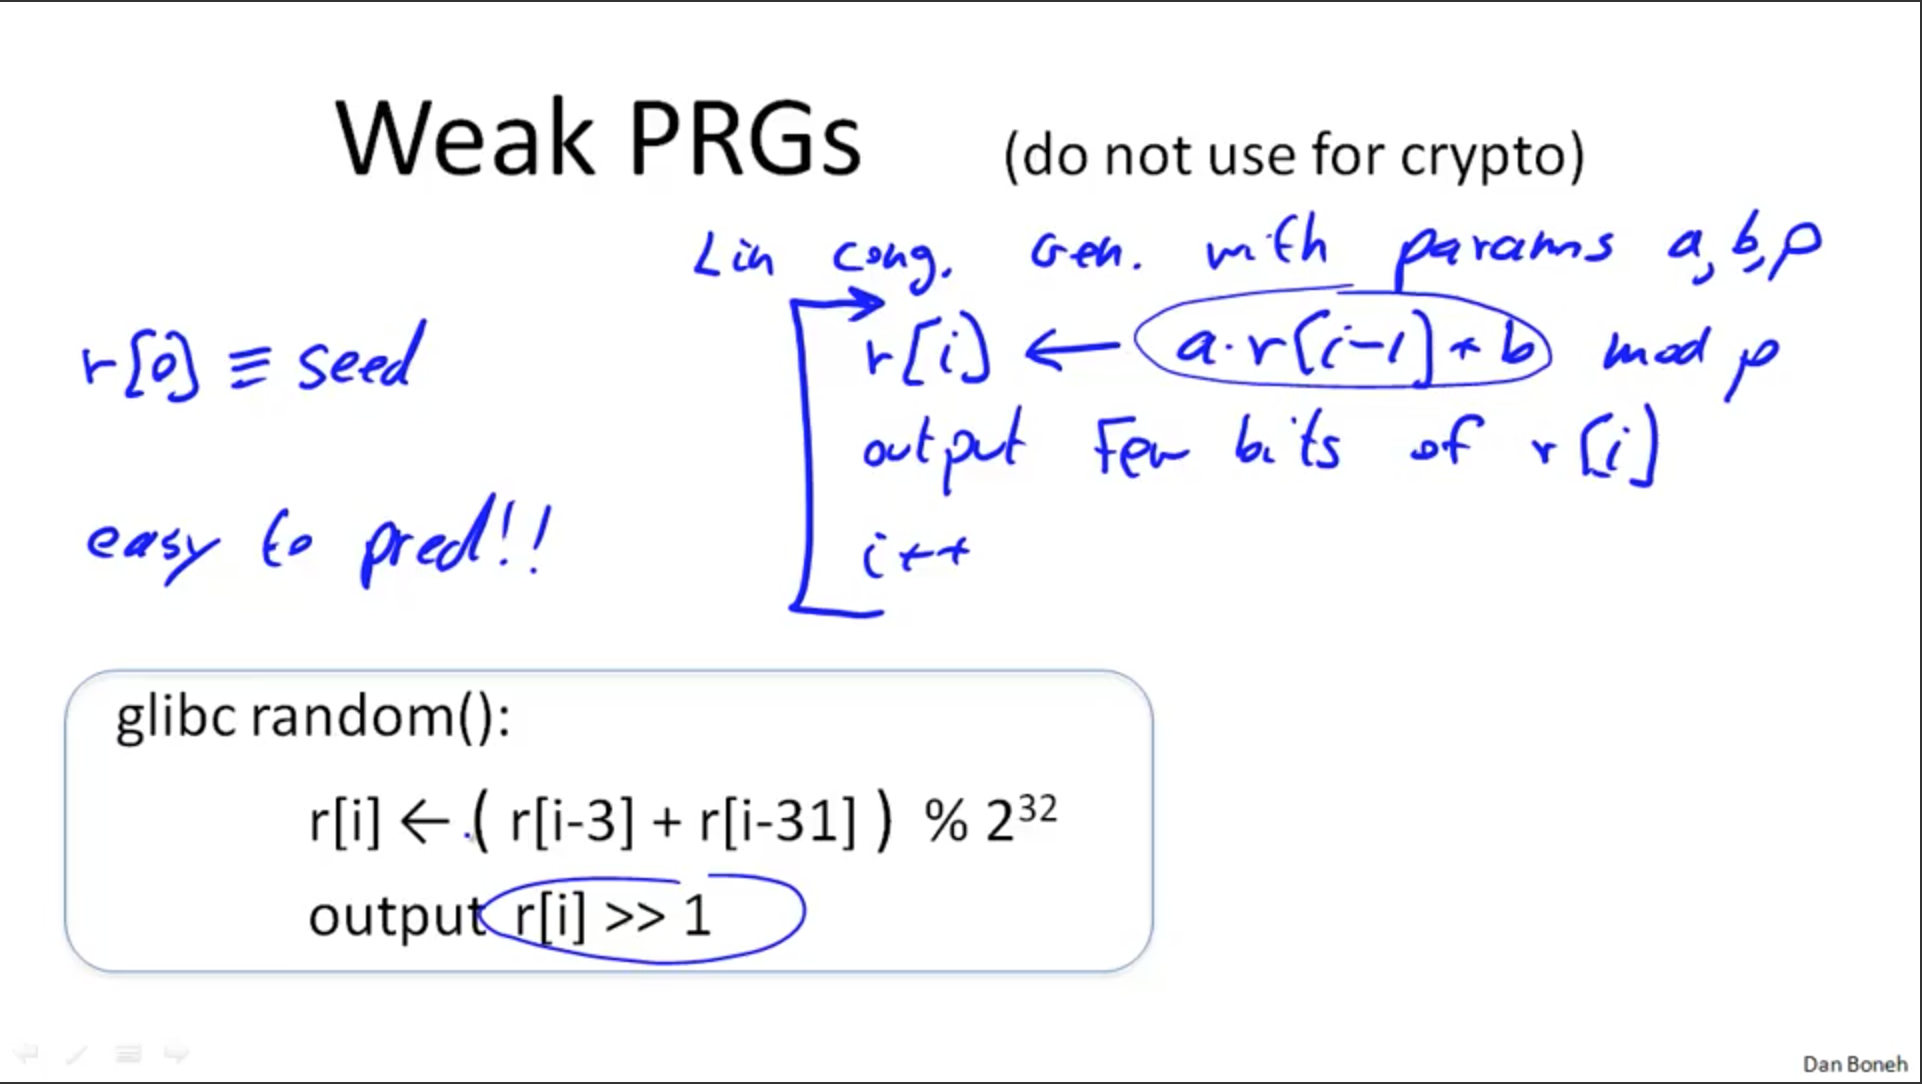 Weak PRGs (do not use for crypto)
Lin cong. Gen. with params a, b, p
r[0] ≡ seed
r[i] ← a·r[i-1] + b mod p
output few bits of r[i]
easy to pred!!
i++
glibc random():
r[i] ← ( r[i-3] + r[i-31] ) % 2³²
output r[i] >> 1
Dan Boneh